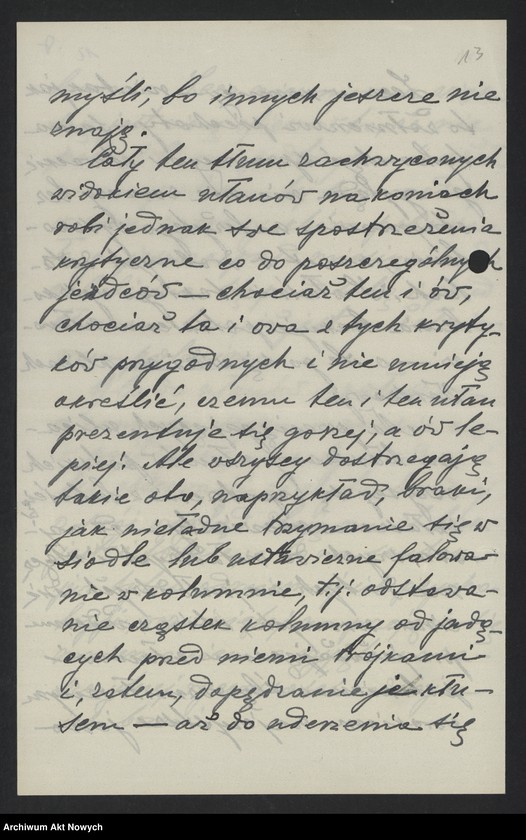 13
myśli, bo innych jeszcze nie
znają.
Cały ten tłum zachwyconych
widokiem ułanów na koniach
robi jednak swe spostrzeżenia
krytyczne co do poszczególnych
jeźdców — chociaż ten i ów,
chociaż ta i owa z tych kryty-
ków przygodnych i nie umieją
określić, czemu ten i ten ułan
prezentuje się gorzej, a ów le-
piej! Ale wszyscy dostrzegają
takie oto, naprzykład, braki,
jak nieładne trzymanie się w
siodle lub ustawiczne falowa-
nie w kolumnie, t.j. odstawa-
nie cząstek kolumny od jadą-
cych przed niemi trójkami
i, zatem, dopędzanie je kłu-
sem — aż do uderzenia się
Archiwum Akt Nowych